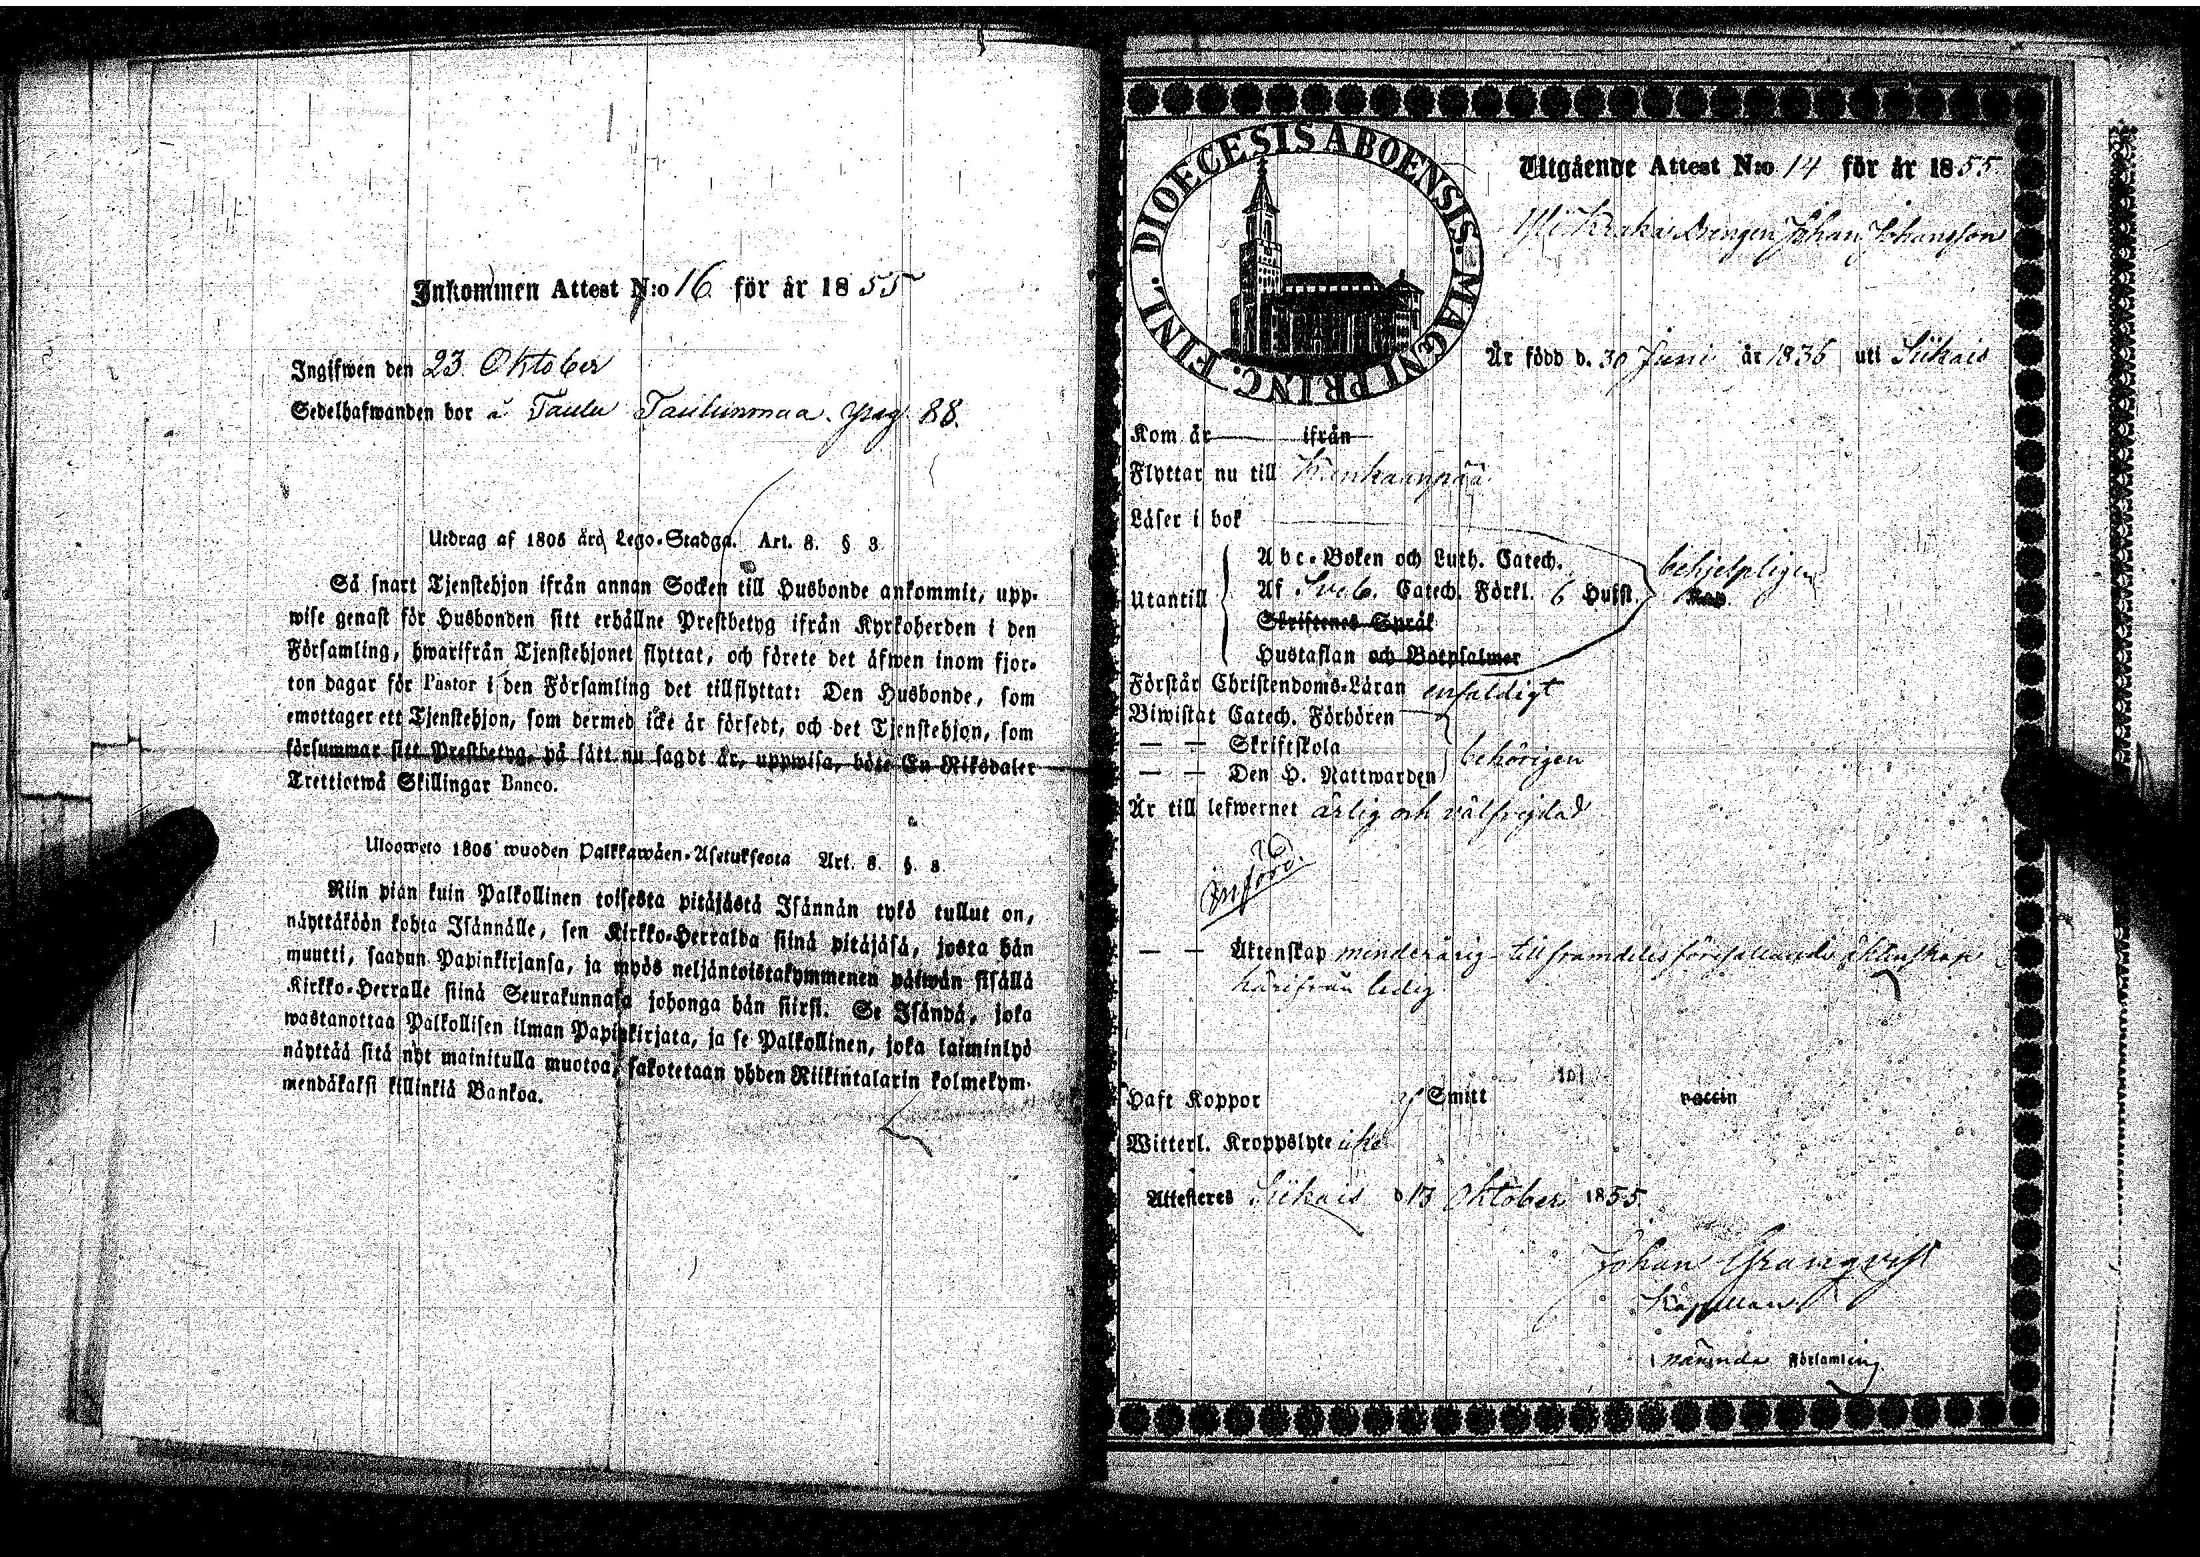 Inkommen Attest N:o 16 för år 1855
Ingifwen den 23. Oktober
Sedelhafwanden bor å Taulu Taulunmaa. pag 88.
Utdrag af 1805 års Lego-Stadga. Art. 8. § 3
Så snart Tjenstehjon ifrån annan Socken till Husbonde ankommit, upp-
wise genast för Husbonden sitt erhållne Prestbetyg ifrån Kyrkoherden i den
Församling, hwarifrån Tjenstehjonet flyttat, och förete det äfwen inom fjor-
ton dagar för Pastor i den Församling det tillflyttat: Den Husbonde, som
emottager ett Tjenstehjon, som dermed icke är försedt, och det Tjenstehjon, som
försummar sitt Prestbetyg, på sätt nu sagdt är, uppwisa, böte En Riksdaler
Trettiotwå Skillingar Banco.
Ulosweto 1805 wuoden Palkkawäen-Asetuksesta Art. 8. §. 3
Niin pian kuin Palkollinen toisesta pitäjästä Isännän tykö tullut on,
näyttäköön kohta Isännälle, sen Kirkko-Herralda siinä pitäjäsä, josta hän
muutti, saadun Papinkirjansa, ja myös neljäntoistakymmenen päiwän sisällä
Kirkko-Herralle siinä Seurakunnasa johonga hän siirsi. Se Isändä, joka
wastanottaa Palkollisen ilman Papinkirjata, ja se Palkollinen, joka laiminlyö
näyttää sitä nyt mainitulla muotoa, sakotetaan yhden Riikintalarin kolmekym-
mendäkaksi killinkiä Bankoa.
DIOECESIS ABOENSIS. MAGNI PRINC. FINL.
Utgående Attest N:o 14 för år 1855
Drengen Johan Johansson
Är född d. 30 Juni år 1836 uti Siikais
Kom år ifrån
Flyttar nu till Kankaanpää
Läser i bok
Abc-Boken och Luth. Catech.
behjelpligen
Utantill Af Sveb. Catech. Förkl. 6 Hufst.
Skriftenes Språk
Hustaflan och Botpsalmer
Förstår Christendoms-Läran enfaldigt
Biwistat Catech. Förhören
— — Skriftskola
behörigen
— — Den H. Nattwarden
Är till lefwernet ärlig och välfrejdad
Införd.
— — Äktenskap minderårig - till framdeles förefallande äktenskap
härifrån ledig
Haft Koppor af Smitt vaccin
Witterl. Kroppslyte icke
Attesteres Siikais d 13 Oktober 1855.
Johan Granqvist
Kapellan
i nämnde Församling